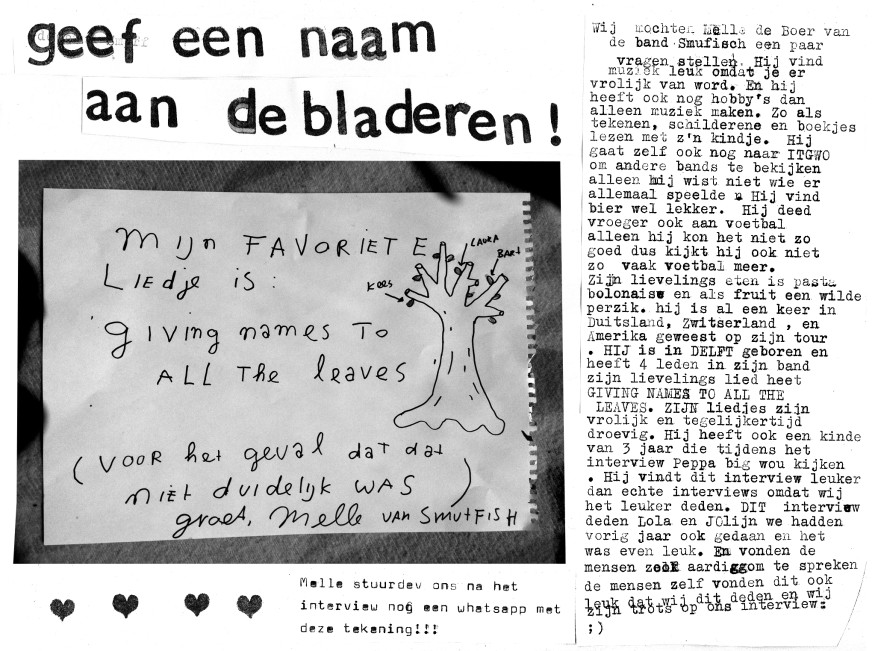 geef een naam
aan de bladeren!
Mijn FAVORIETE
Liedje is:
giving names To
ALL The leaves
(VOOR het geval dat dat
niet duidelijk WAS)
groet, Melle van SMUTFISH
KEES
LAURA
BART
Melle stuurdev ons na het
interview nog een whatsapp met
deze tekening!!!
Wij mochten Melle de Boer van
de band Smufisch een paar
vragen stellen. Hij vind
muziek leuk omdat je er
vrolijk van word. En hij
heeft ook nog hobby's dan
alleen muziek maken. Zo als
tekenen, schilderene en boekjes
lezen met z'n kindje. Hij
gaat zelf ook nog naar ITGWO
om andere bands te bekijken
alleen hij wist niet wie er
allemaal speelde. Hij vind
bier wel lekker. Hij deed
vroeger ook aan voetbal
alleen hij kon het niet zo
goed dus kijkt hij ook niet
zo vaak voetbal meer.
Zijn lievelings eten is pasta
bolonaise en als fruit een wilde
perzik. hij is al een keer in
Duitsland, Zwitserland , en
Amerika geweest op zijn tour
. HIJ is in DELFT geboren en
heeft 4 leden in zijn band
zijn lievelings lied heet
GIVING NAMES TO ALL THE
LEAVES. ZIJN liedjes zijn
vrolijk en tegelijkertijd
droevig. Hij heeft ook een kinde
van 3 jaar die tijdens het
interview Peppa big wou kijken
. Hij vindt dit interview leuker
dan echte interviews omdat wij
het leuker deden. DIT interview
deden Lola en JOlijn we hadden
vorig jaar ook gedaan en het
was even leuk. En vonden de
mensen aardiggom te spreken
de mensen zelf vonden dit ook
leuk dat wij dit deden en wij
zijn trots op ons interview:
;)